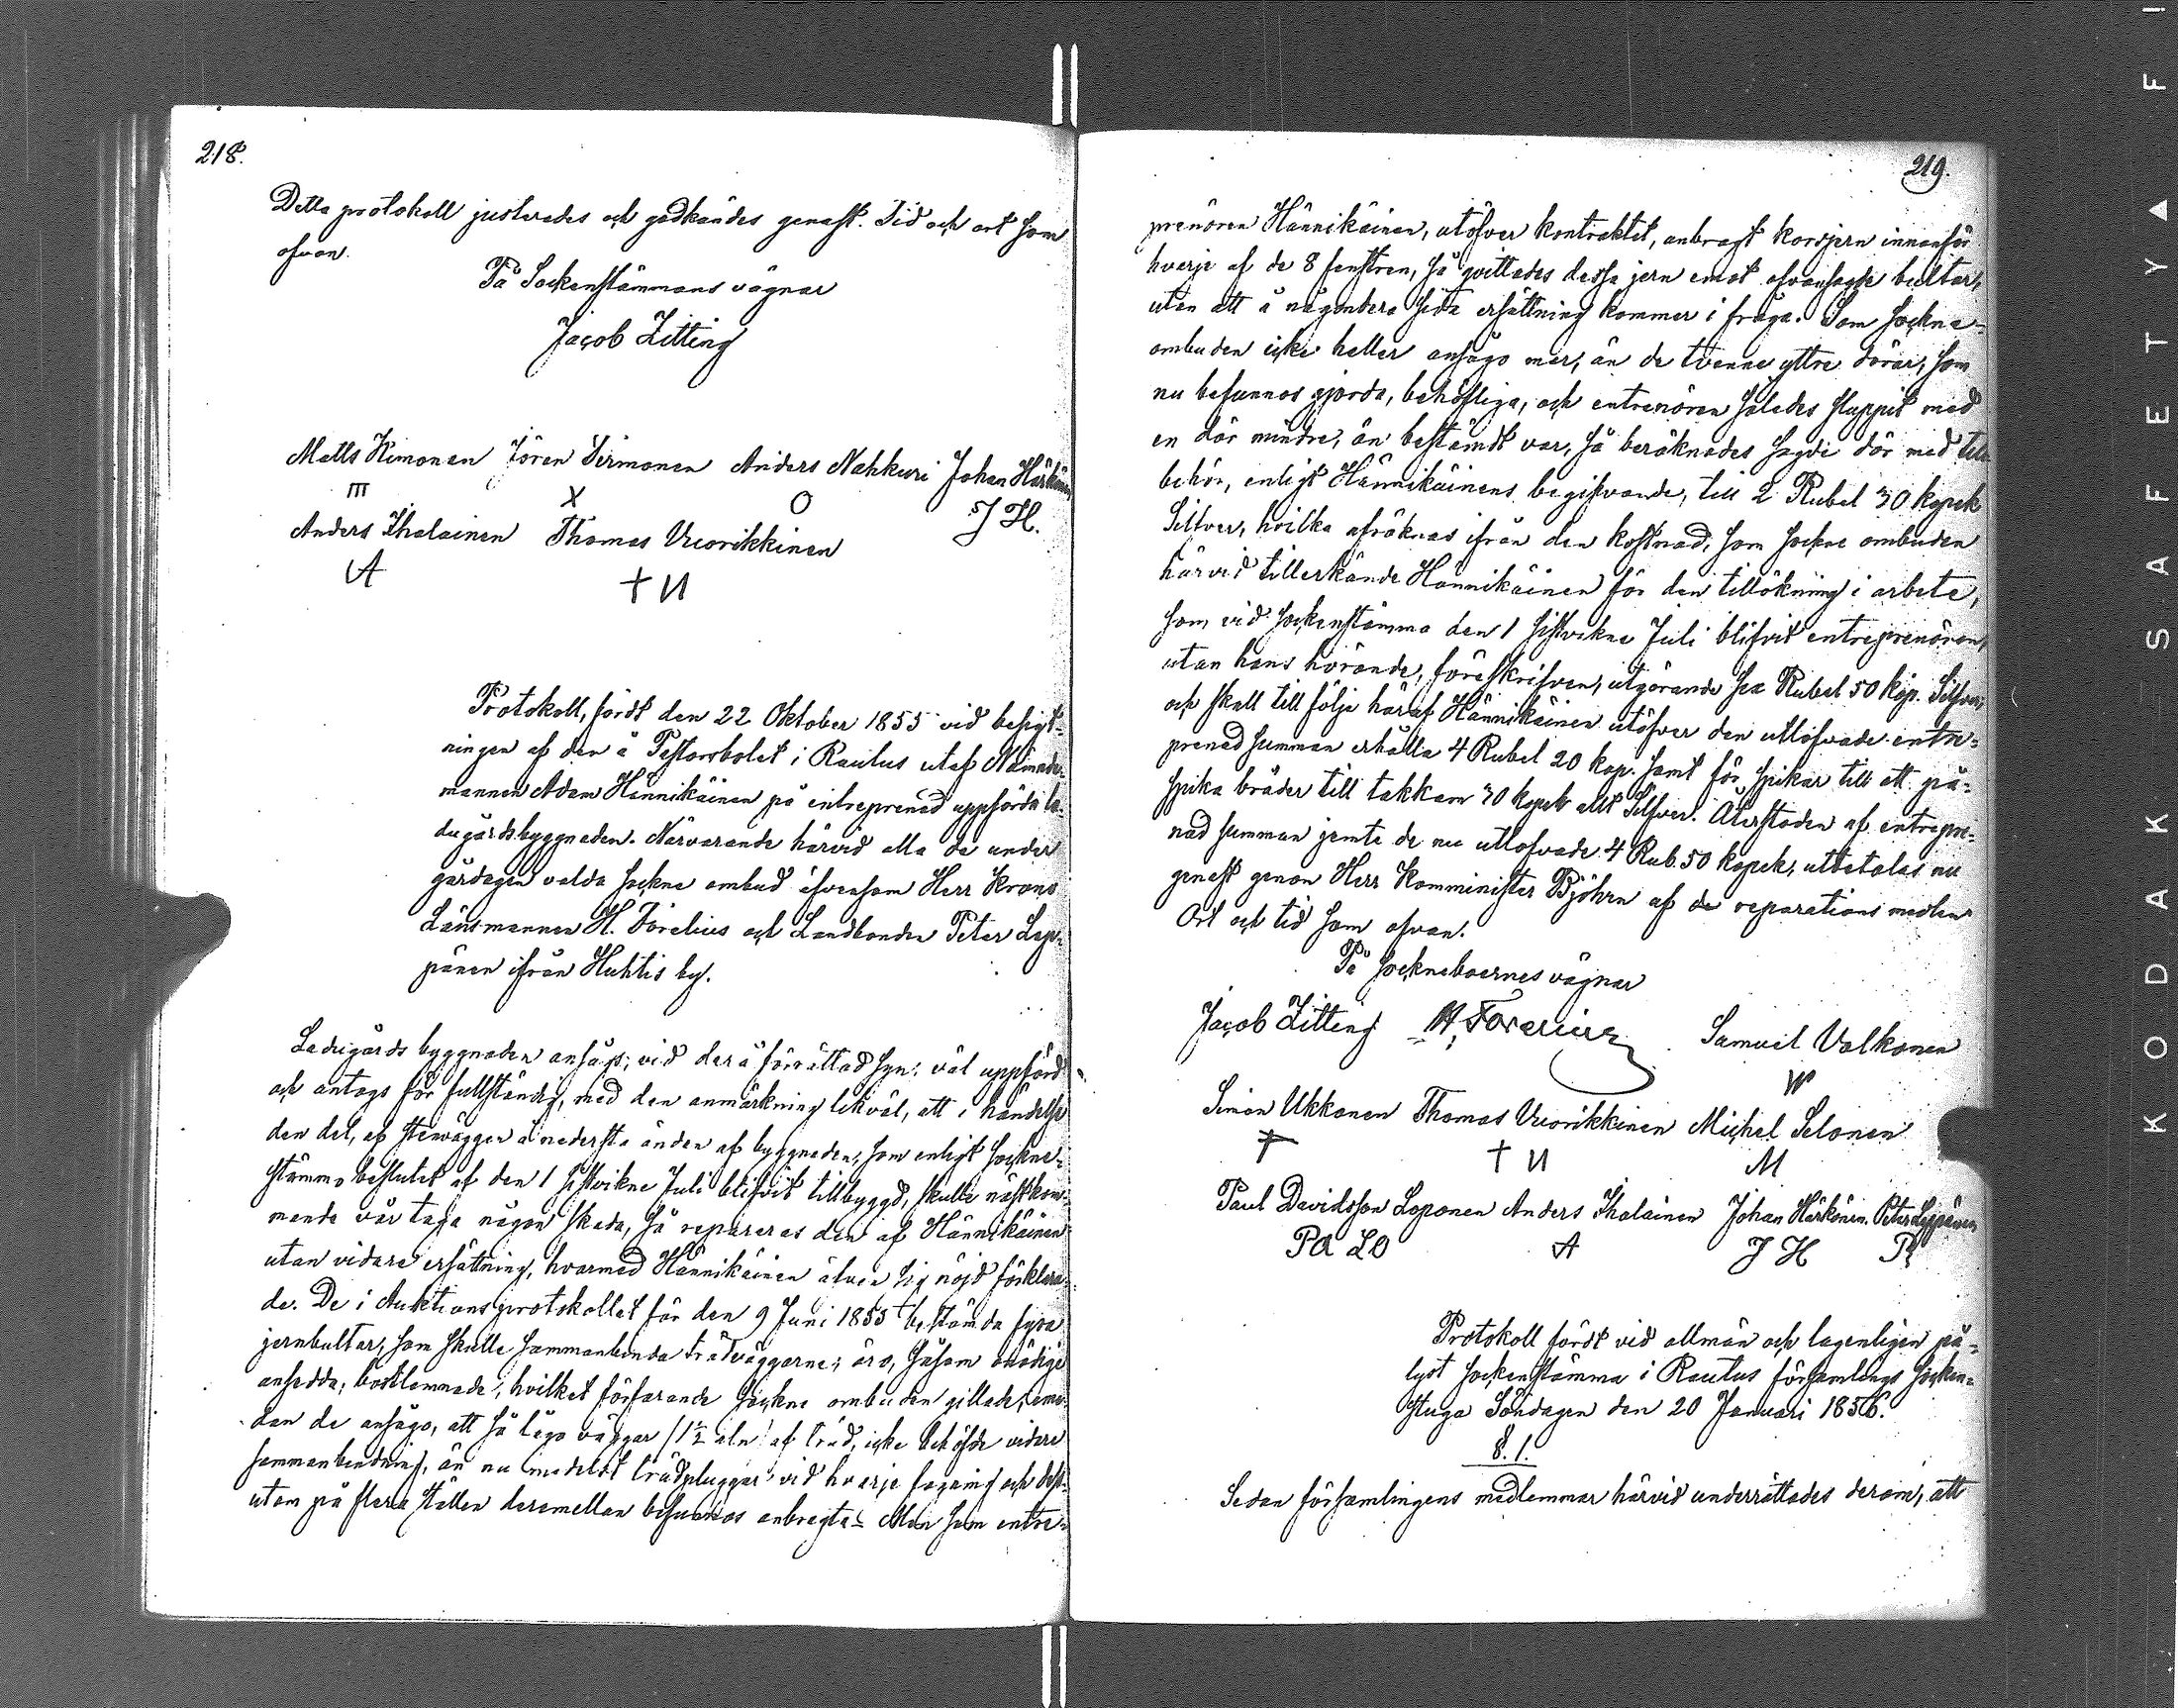 218.
Detta protokoll justerades och godkändes genast. Tid och ort som
ofvan.
På Sockenstämmans vägnar
Jacob Zitting
Matts Kimonen Jören Sirmonen Anders Nahkuri Johan Härkönen
m X O J H.
Anders Ihalainen Thomas Vuorikkinen
A † U
Protokoll, fördt den 22 Oktober 1855 vid besigt-
ningen af den å Pastorsbolet i Rautus utaf Nämnde-
mannen Adam Hännikäinen på entreprenad uppförda la-
dugårdsbyggnaden. Närvarande härvid alla de under
gårdagen valda sockne ombud äfvensom Herr Krono
Länsmannen H. Forelius och Landbonden Peter Lep-
pänen ifrån Huhtis by.
Ladugårds byggnaden ansågs, vid derå förrättad syn, väl uppförd
och antogs för fullständig, med den anmärkning likväl, att i händelse
den del, af stenväggen å nedersta änden af byggnaden, som enligt sockne-
stämmo beslutet af den 1 sistvikne Juli blifvit tillbyggd, skulle nästkom-
mande vår taga någon skada, så repareras den af Hännikäinen
utan vidare ersättning, hvarmed Hännikäinen äfven sig nöjd förklara-
de. De i Auktionsprotokollet för den 9 Juni 1855 bestämda fyra
jernbultar, som skulle sammanbinda trädväggarne, äro, såsom onödige
ansedda, bortlemnade, hvilket förfarande sockne ombuden gillade, eme-
dan de ansågo, att så låga väggar /1½ aln/ af träd, icke behöfde vidare
sammanbindning, än nu medelst trädpluggar vid hvarje fogning och dess-
utom på flera ställen deremellan befunnos anbragta. Men som entre-
219.
prenören Hännikäinen, utöfver kontraktet, anbragt korsjern innanför
hvarje af de 8 fenstren, så qvittades dessa jern emot ofvansagde bultar,
utan att å någondera sida ersättning kommer i fråga. Som sockne-
ombuden icke heller ansågo mer, än de tvenne yttre dörar, som
nu befunnos gjorda, behöfliga, och entrenören således sluppit med
en dör mindre, än bestämdt var, så beräknades sagde dör med till-
behör, enligt Hännikäinens begifvande, till 2 Rubel 30 kopek
Silfver, hvilka afräknas ifrån den kostnad, som sockne ombuden
härvid tillerkände Hännikäinen för den tillökning i arbete,
som vid sockenstämma den 1 sistvikne Juli blifvit entreprenören,
utan hans hörande, föreskrifven, utgörande sex Rubel 50 kop. Silfver,
och skall till följe häraf Hännikäinen utöfver den utlofvade entre-
prenad summan erhålla 4 Rubel 20 kop. samt för spikar till att på-
spika bräder till takkam 30 kopek allt Silfver. Återstoden af entrepre-
nad summan jemte de nu utlofvade 4 Rub. 50 kopek, utbetalas nu
genast genom Herr Komminister Björn af de reparations medlen
Ort och tid som ofvan.
På sockneboernes vägnar
Jacob Zitting H. Forelius Samuel Valkonen
W
Simon Ukkonen Thomas Vuorikkinen Michel Selonen
† U M
Paul Davidsson Loponen Anders Ihalainen Johan Härkönen. Peter Leppänen
Pa LO A J H P
Protokoll fördt vid allmän och lagenligen på-
lyst sockenstämma i Rautus församlings socken-
stuga Söndagen den 20 Januari 1856.
§. 1.
Sedan församlingens medlemmar härvid underrättades derom, att
KODAK SAFETY ▲ F